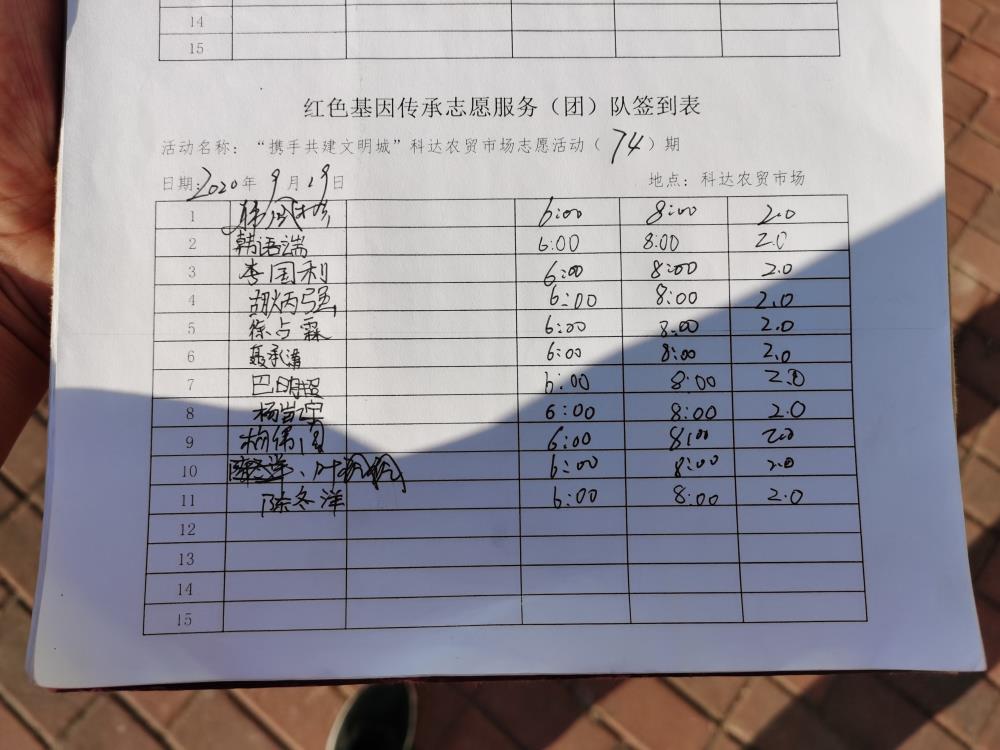 14
15
红色基因传承志愿服务（团）队签到表
活动名称：“携手共建文明城”科达农贸市场志愿活动（74）期
日期：2020年9月19日 地点：科达农贸市场
1 6:00 8:00 2.0
2 韩语端 6:00 8:00 2.0
3 李国利 6:00 8:00 2.0
4 胡炳强 6:00 8:00 2.0
5 徐占霖 6:00 8:00 2.0
6 聂承 6:00 8:00 2.0
7 巴明超 6:00 8:00 2.0
8 杨 6:00 8:00 2.0
9 6:00 8:00 2.0
10 6:00 8:00 2.0
11 陈冬洋 6:00 8:00 2.0
12
13
14
15